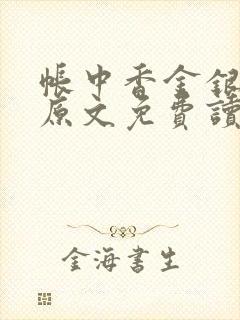 帳中香金銀
原文免費讀
金海書生